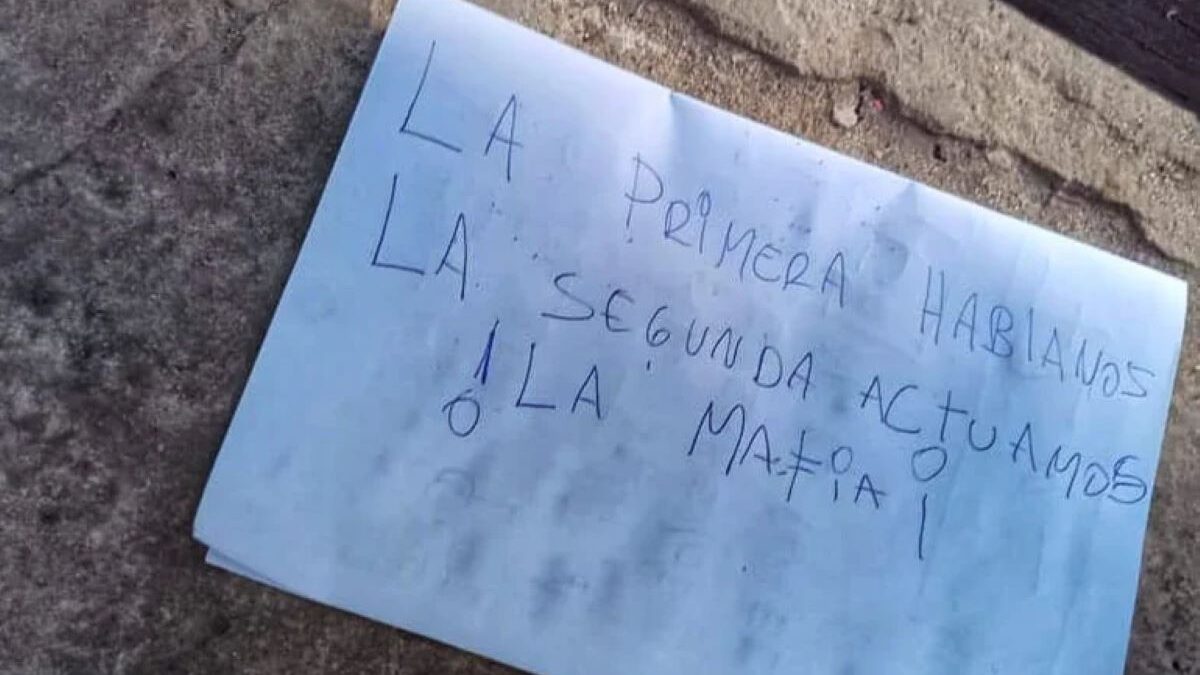 LA PRIMERA HABlANOS
LA SEGUNDA ACTUAMOS
!LA MAFiA¡